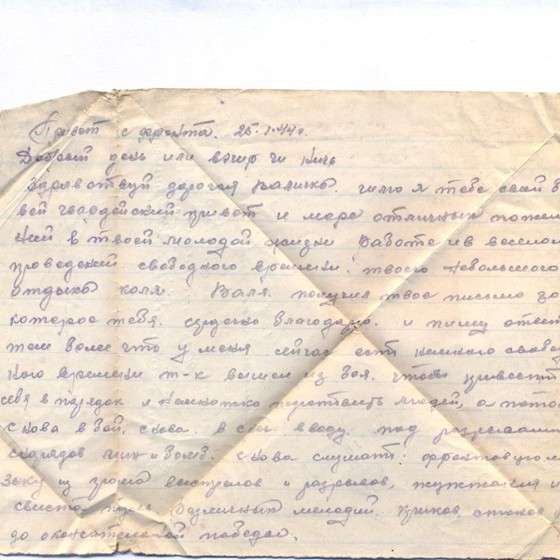 Привет с фронта. 25.1.44г.
Добрый день или вечер чи ночь
Здравствуй дорогая Валичка. шлю я тебе свой б
вой гвардейский привет и море отличных пожел
ний в твоей молодой жизни Работе и в веселом
проведении свободного времени. твоего небольшого
отдыха коля. Валя. получил твое письмо за
которое тебя. сердечно благодарю. и пишу ответ
тем более что у меня сейчас есть немного свобод
ного времени т-к вышел из боя. чтоб привести
себя в порядок и немножко подготовить людей, а потом
снова в бой, снова. в огонь воду, под разрывами
снарядов мин и бомб. снова слушать фронтовую м
зыку из грома выстрелов и разрывов, жужжания и
свиста пуль различных мелодий. криков, стонов
до окончательной победы.